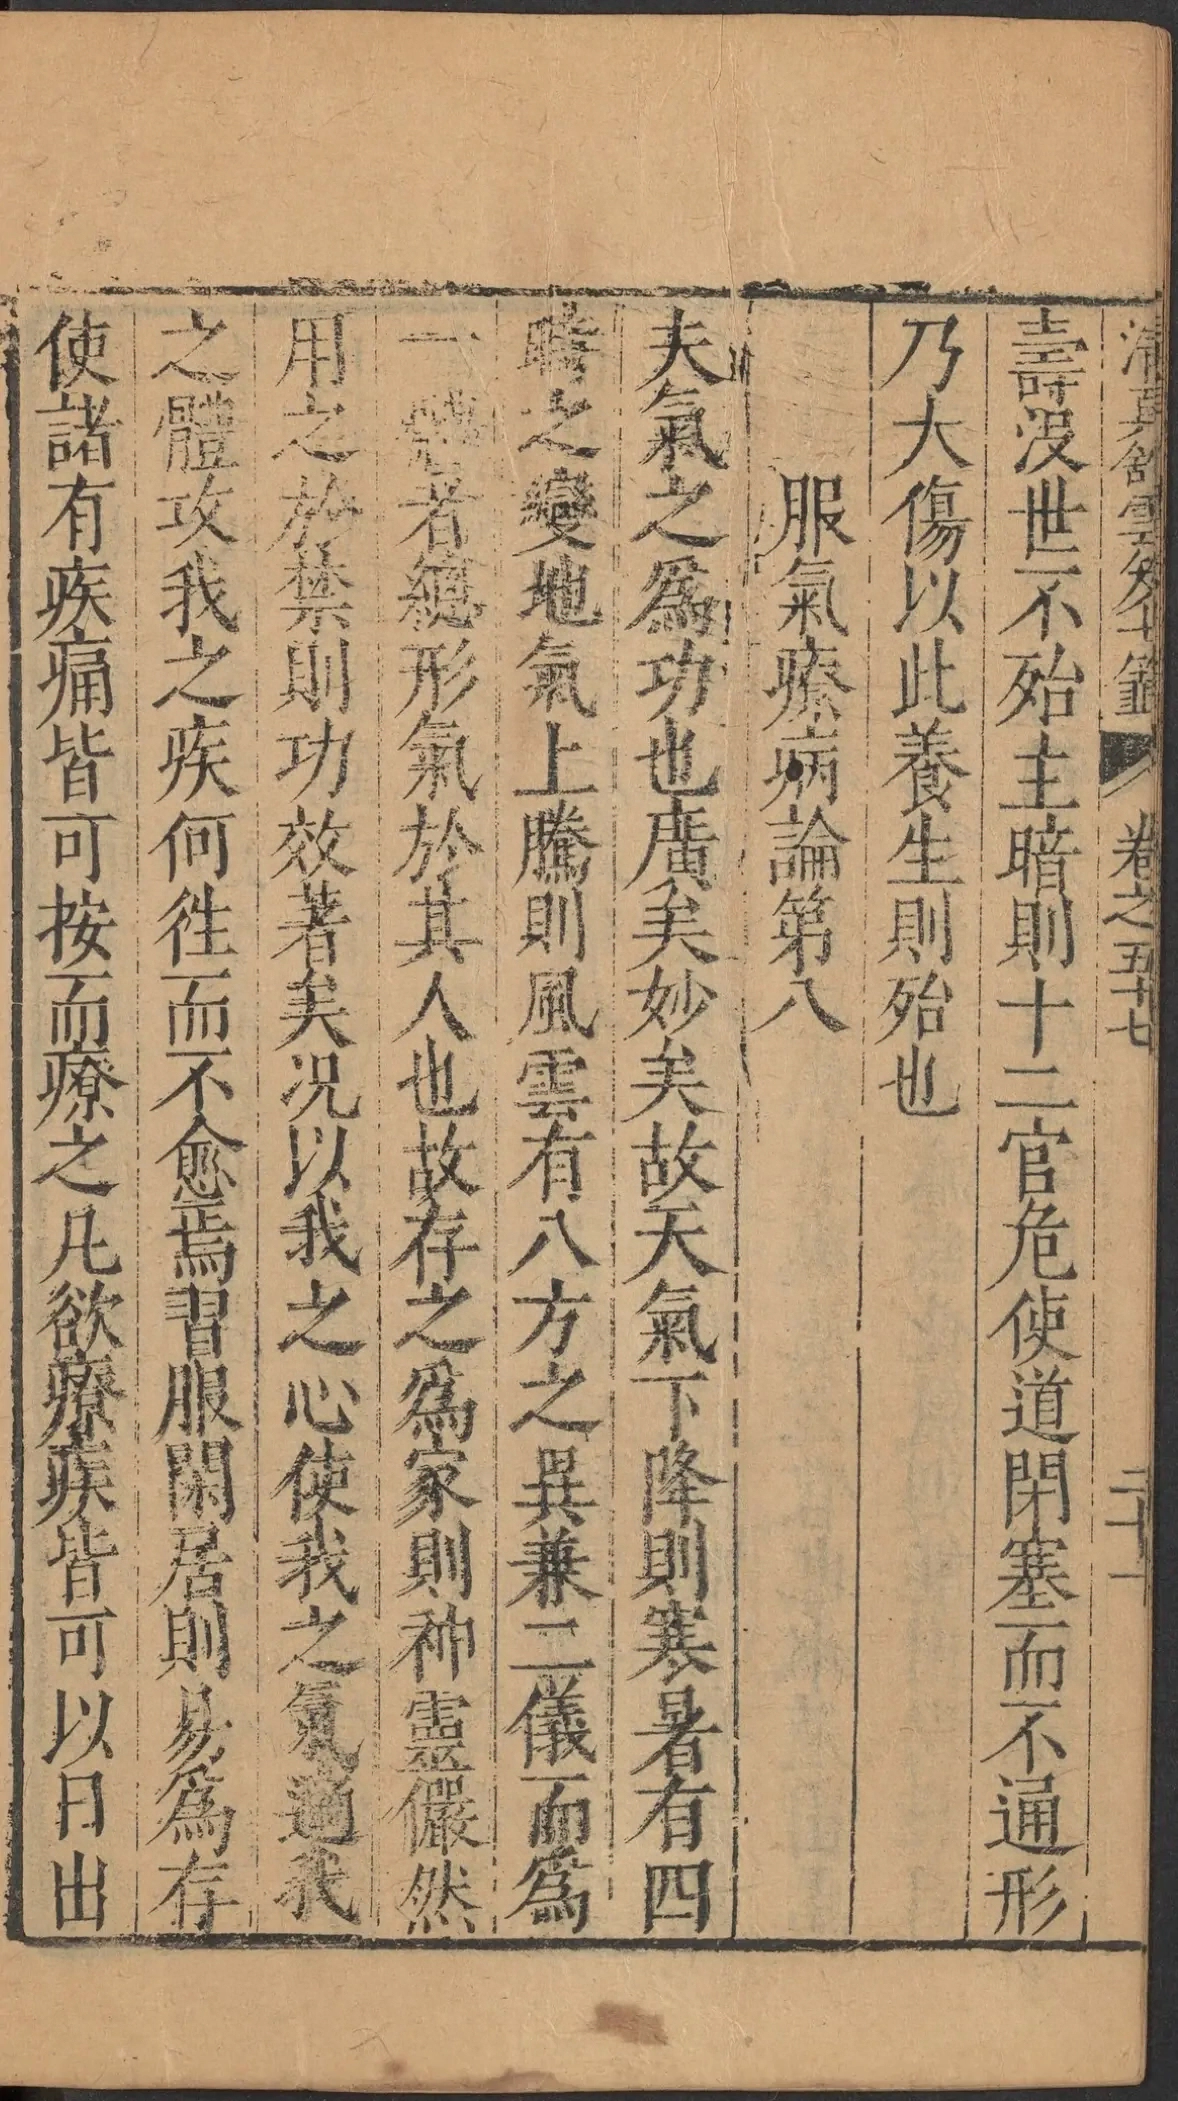 清真館雲笈七籤 卷之五十七 二十一
壽沒世不殆主暗則十二官危使道閉塞而不通形
乃大傷以此養生則殆也
服氣療病論第八
夫氣之爲功也廣矣妙矣故天氣下降則寒暑有四
時之變地氣上騰則風雲有八方之異兼二儀而爲
一體者緫形氣於其人也故存之爲家則神靈儼然
用之於禁則功效著矣况以我之心使我之氣適我
之體攻我之疾何徃而不愈焉習服閑居則易爲存
使諸有疾痛皆可按而療之凡欲療疾皆可以日出